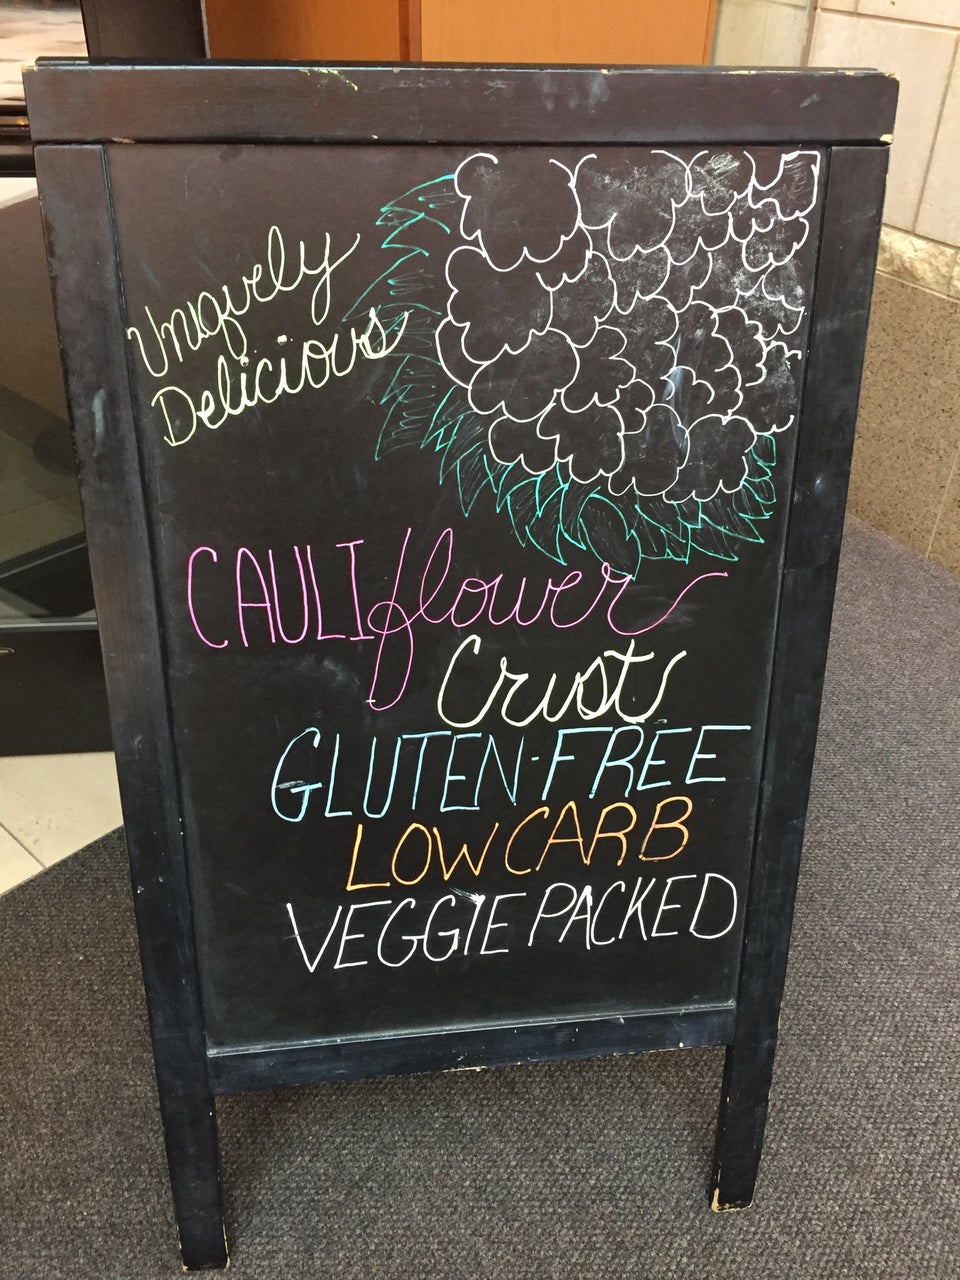 Uniquely
Delicious
CAULIflower
Crust
GLUTEN-FREE
LOW CARB
VEGGIE PACKED